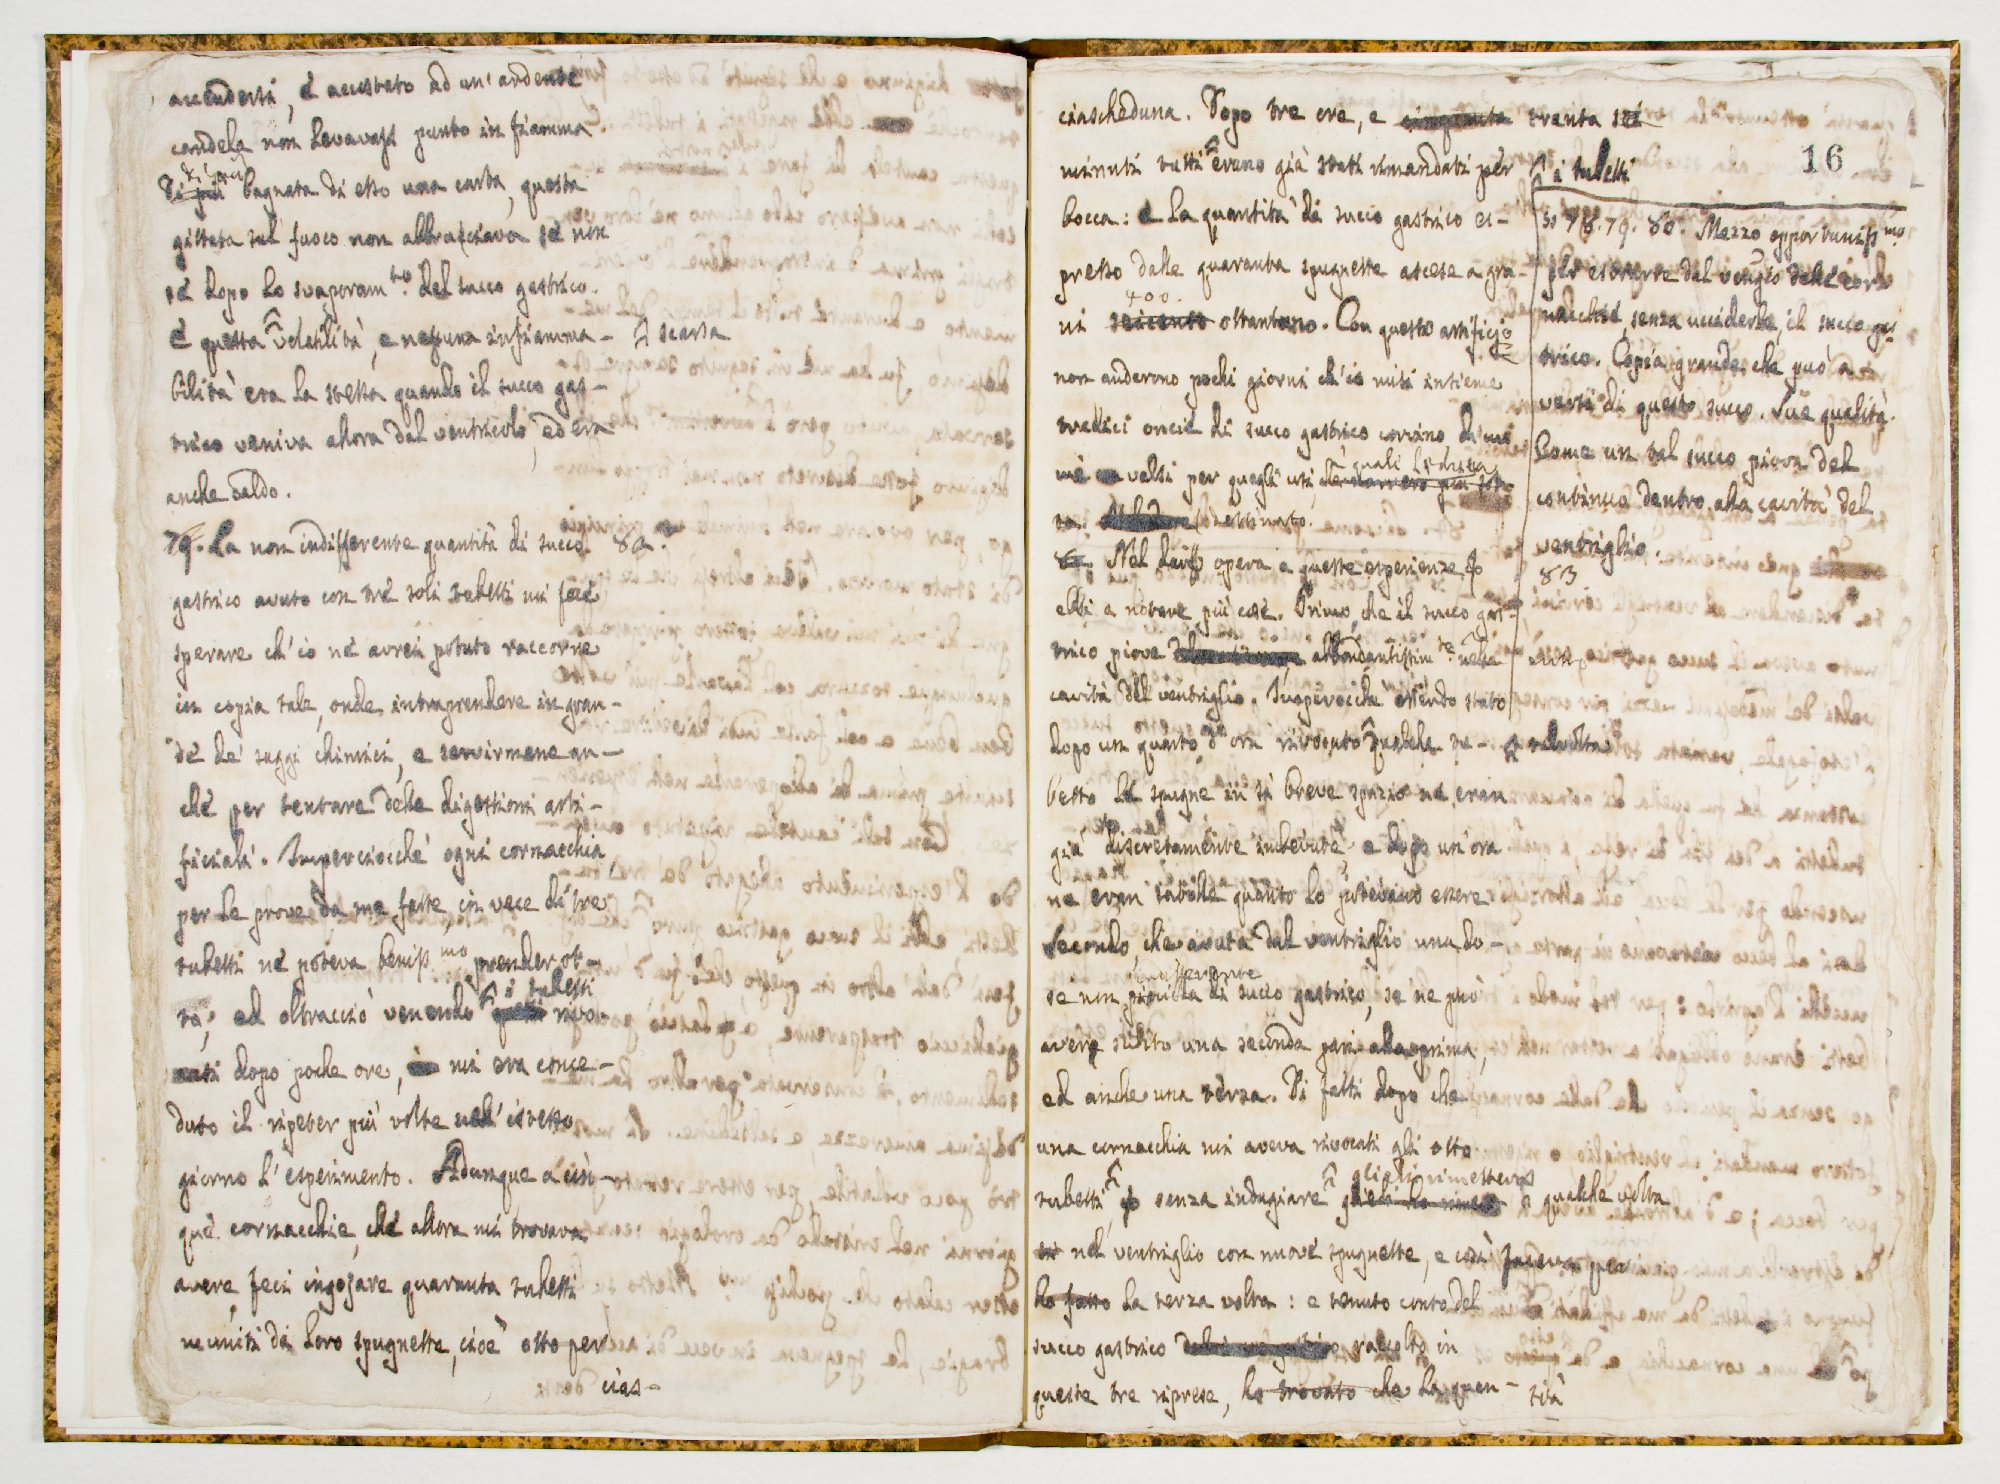 accendersi, e accostato ad un' ardente
candela non levavasi punto in fiamma.
Di più bagnata di esso una carta, questa
gittata sul fuoco non abbrucciava se non
se dopo lo svaporam.to del succo gastrico.
E questa volatilità, e nessuna infiamma-
^ scarsa
bilità era la stessa quando il succo gas-
trico veniva allora dal ventricolo, ed era
anche caldo.
79. La non indifferente quantità di succo 82.
gastrico avuto con tre soli tubetti mi fece
sperare ch' io ne avrei potuto raccorne
in copia tale, onde intraprendere in gran-
de de' saggi chimici, e servirmene an-
che per tentare delle digestioni arti-
ficiali. Imperciocchè ogni cornacchia
per le prove da me fatte, in vece di tre
tubetti ne poteva beniss.mo prender ot-
to; ed oltracciò venendo ^ i tubetti rivo-
cati dopo poche ore, mi era conce-
duto il ripeter più volte nell' istesso
giorno l' esperimento. Adunque a cin-
que cornacchie, che allora mi trovava
avere, feci ingojare quaranta tubetti
muniti di loro spugnette, cioè otto per
cias-
ciascheduna. Dopo tre ore, e cinquanta trenta sei
minuti tutti ^ erano già stati rimandati per
^ i tubetti
16
bocca: e la quantità di succo gastrico es-
presso dalle quaranta spugnette ascese a gra-
400.
ni seicento ottantuno. Con questo artificio
non anderono pochi giorni ch' io misi insieme
tredici oncie di succo gastrico corvino di cui
mi valsi per quegli usi, a' quali l'
destinato.
Nel
essi a notare più cose. Primo, che il succo gas-
trico piove abbondantissim.te nella
cavità del ventriglio. Imperocchè essendo stato
dopo un quarto d' ora rivocuto qualche tu-
^ talvolta
betto le spugne in sì breve spazio ne eran
già discretamente imbevute, e dopo un' ora
ne eran satolle quanto lo potevano essere
Secondo, che avuta dal ventriglio una do-
se non di succo gastrico, se ne può
avere subito una seconda pari alla prima,
ed anche una terza. Di fatti dopo che
una cornacchia mi aveva rivocati gli otto
tubetti, io senza indugiare ^ glieli rimetteva qualche volta
nel ventriglio con nuove spugnette, e così faceva per
ho fatto la terza volta: e tenuto conto del
succo gastrico raccolto in
queste tre riprese, ho trovato che la quan-
tità
§§ 78. 79. 80. Mezzo opportuniss.mo
per estrarre dal ventriglio delle cor
nacchie, senza ucciderle, il succo gas
trico. Copia grande che può a-
versi di questo succo. Sue qualità.
Come un tal succo piova del
continuo dentro alla cavità del
ventriglio.
83.